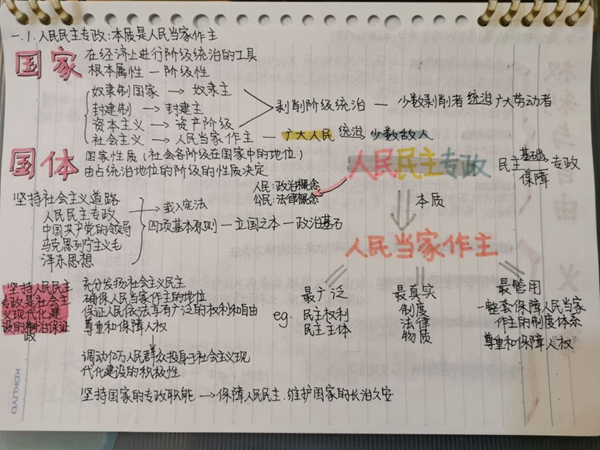 一.1.人民民主专政:本质是人民当家作主
国家
在经济上进行阶级统治的工具
根本属性—阶级性
奴隶制国家→奴隶主
封建制→封建主
资本主义→资产阶级
剥削阶级统治—少数剥削者统治广大劳动者
社会主义→人民当家作主—广大人民统治少数敌人
国体
国家性质(社会各阶级在国家中的地位)
由占统治地位的阶级的性质决定
人民民主专政
民主 基础 保障 专政
人民:政治概念
公民:法律概念
坚持社会主义道路
人民民主专政
中国共产党的领导
马克思列宁主义毛
泽东思想
载入宪法
四项基本原则—立国之本—政治基石
本质
人民当家作主
坚持人民民主
专政是社会主
义现代化建
设的政治保证
充分发扬社会主义民主
确保人民当家作主的地位
保证人民依法享有广泛的权利和自由
尊重和保障人权
调动亿万人民群众投身于社会主义现
代化建设的积极性
坚持国家的专政职能→保障人民民主.维护国家的长治久安
最广泛
eg.
民主权利
民主主体
最真实
制度
法律
物质
最管用
一整套保障人民当家
作主的制度体系
尊重和保障人权
KOKUYO